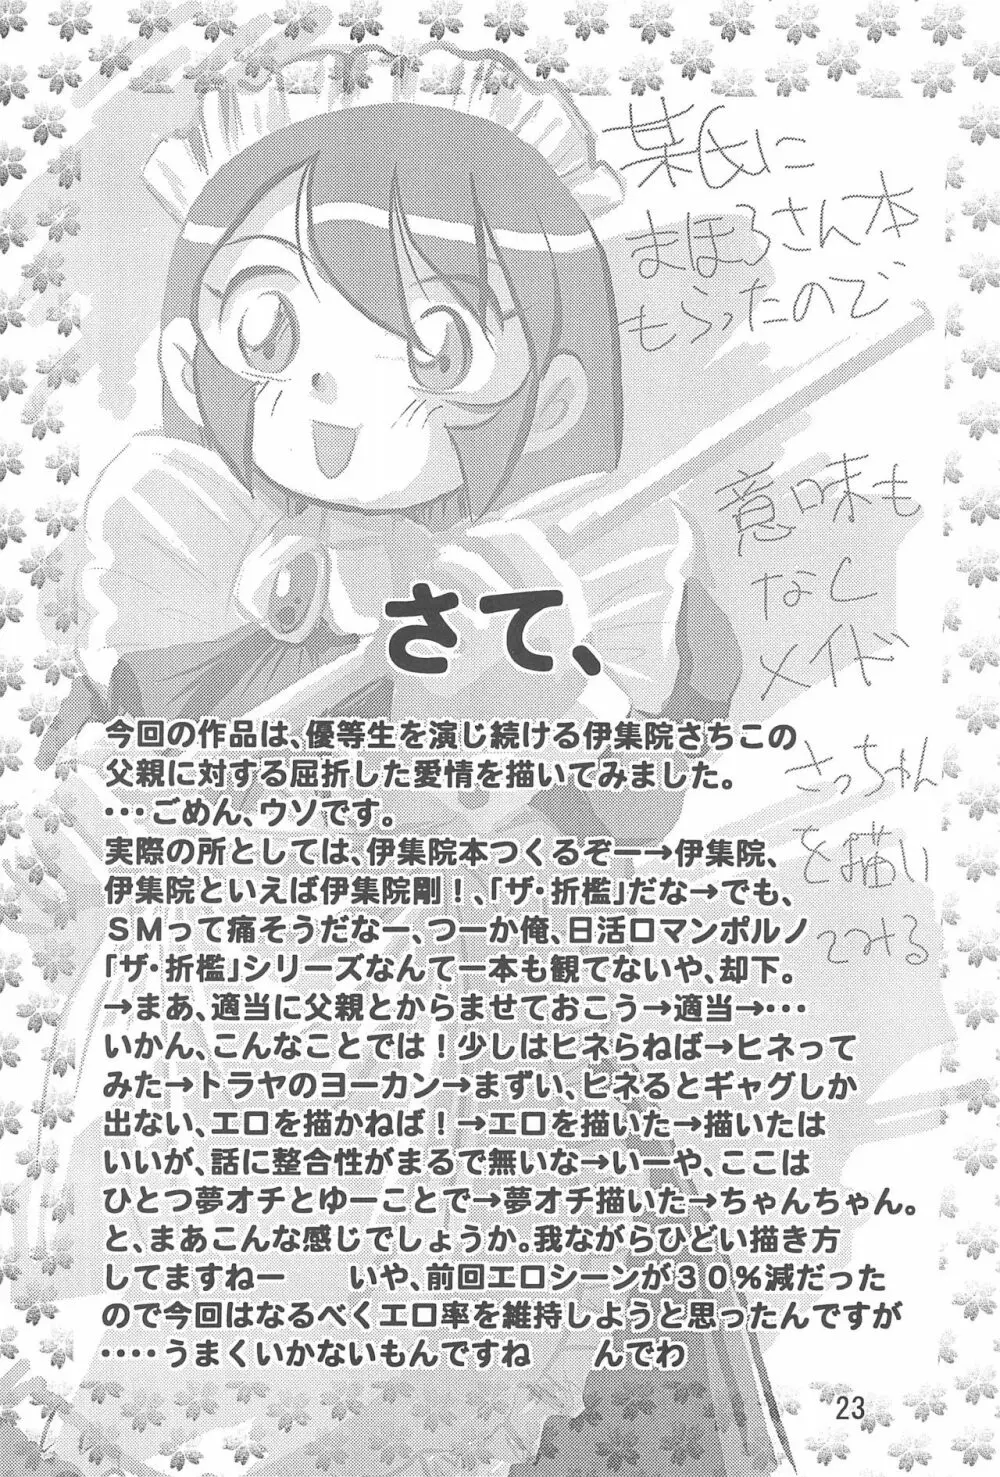 某氏に
まほろさん本
もらったので
意味も
なく
メイド
さっちゃん
を描い
てみる
さて、
今回の作品は、優等生を演じ続ける伊集院さちこの
父親に対する屈折した愛情を描いてみました。
･･･ごめん、ウソです。
実際の所としては、伊集院本つくるぞー→伊集院、
伊集院といえば伊集院剛！、「ザ・折檻」だな→でも、
ＳＭって痛そうだなー、つーか俺、日活ロマンポルノ
「ザ・折檻」シリーズなんて一本も観てないや、却下。
→まあ、適当に父親とからませておこう→適当→･･･
いかん、こんなことでは！少しはヒネらねば→ヒネって
みた→トラヤのヨーカン→まずい、ヒネるとギャグしか
出ない、エロを描かねば！→エロを描いた→描いたは
いいが、話に整合性がまるで無いな→いーや、ここは
ひとつ夢オチとゆーことで→夢オチ描いた→ちゃんちゃん。
と、まあこんな感じでしょうか。我ながらひどい描き方
してますねー　　いや、前回エロシーンが３０％減だった
ので今回はなるべくエロ率を維持しようと思ったんですが
････うまくいかないもんですね　　んでわ
23